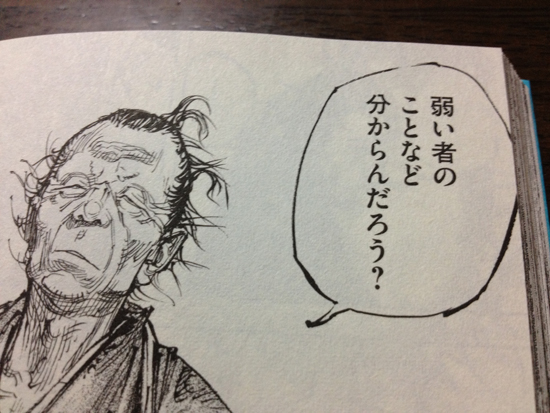 弱い者の
ことなど
分からんだろう？